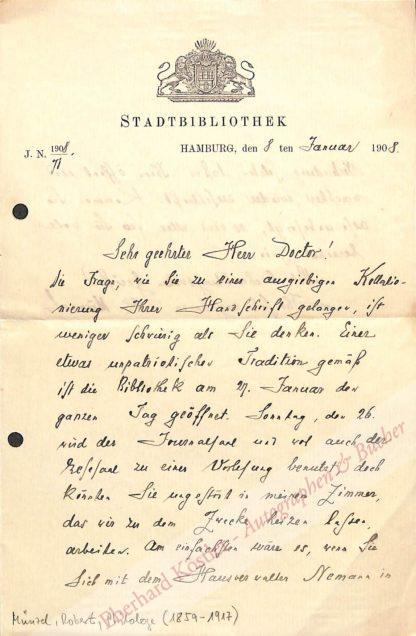 STADTBIBLIOTHEK
J. N. 1908./71. HAMBURG, den 8 ten Januar 1908.
Sehr geehrter Herr Doctor!
die Frage, wie Sie zu einer ausgiebigen Kollatio-
nierung Ihrer Handschrift gelangen, ist
weniger schwierig als Sie denken. Einer
etwas unpatriotischen Tradition gemäß
ist die Bibliothek am 27. Januar den
ganzen Tag geöffnet. Sonntag, den 26.
wird der Journalsaal und wol auch der
Lesesaal zu einer Vorlesung benutzt, doch
könnten Sie ungestört in meinem Zimmer,
das wir zu dem Zwecke heizen lassen,
arbeiten. Am einfachsten wäre es, wenn Sie
sich mit dem Hausverwalter Nemann in
Münzel, Robert, Philologe (1859-1917)
Eberhard Köstler Autographen & Bücher